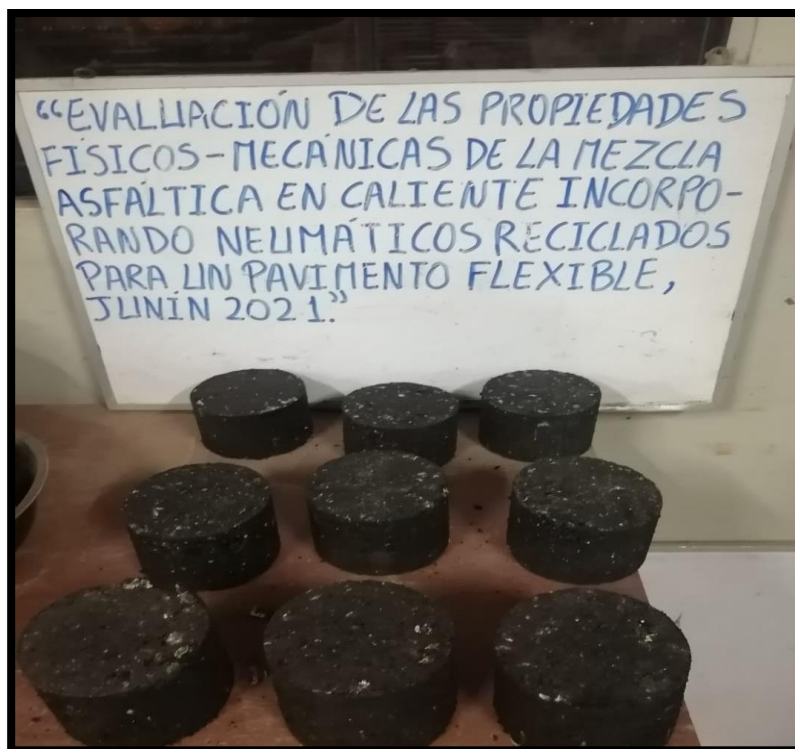 “EVALUACIÓN DE LAS PROPIEDADES
FÍSICOS-MECÁNICAS DE LA MEZCLA
ASFÁLTICA EN CALIENTE INCORPO-
RANDO NEUMÁTICOS RECICLADOS
PARA UN PAVIMENTO FLEXIBLE,
JUNÍN 2021.”